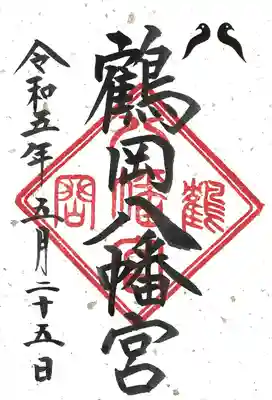 鶴岡八幡宮
令和五年五月二十五日
鶴岡八幡宮